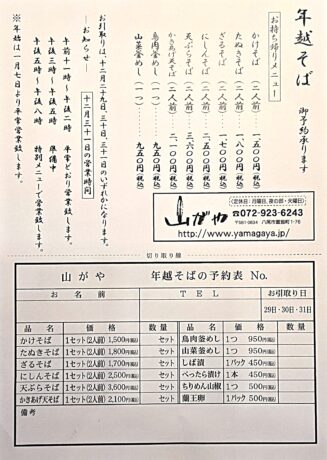 年越そば　御予約承ります
お持ち帰りメニュー
かけそば（二人前）一、五〇〇円（税込）
たぬきそば（二人前）一、八〇〇円（税込）
ざるそば（二人前）一、七〇〇円（税込）
にしんそば（二人前）二、五〇〇円（税込）
天ぷらそば（二人前）三、六〇〇円（税込）
かきあげ天そば（二人前）二、一〇〇円（税込）
鳥肉釜めし（一つ）九五〇円（税込）
山菜釜めし（一つ）九五〇円（税込）
お引取りは、十二月二十九日、三十日、三十一日のいずれかになります。
―お知らせ―
十二月三十一日の営業時間
午前十一時〜午後二時　平常どおり営業致します。
午後三時〜午後五時　準備中
午後五時〜午後八時　特別メニューで営業致します。
※年始は一月七日より平常営業致します。
（定休日：月曜日、夜の部・火曜日）
山がや
☎072-923-6243
〒581-0834　八尾市萱振町7-176
http://www.yamagaya.jp/
切り取り線
山がや　年越そばの予約表　No.
お名前　TEL　お引取り日
29日・30日・31日
品名　価格　数量　品名　価格　数量
かけそば　1セット(2人前)1,500円(税込)　セット　鳥肉釜めし　1つ　950円(税込)
たぬきそば　1セット(2人前)1,800円(税込)　セット　山菜釜めし　1つ　950円(税込)
ざるそば　1セット(2人前)1,700円(税込)　セット　しば漬　1パック　450円(税込)
にしんそば　1セット(2人前)2,500円(税込)　セット　べったら漬け　1本　450円(税込)
天ぷらそば　1セット(2人前)3,600円(税込)　セット　ちりめん山椒　1つ　500円(税込)
かきあげ天そば　1セット(2人前)2,100円(税込)　セット　蘭王卵　1パック　500円(税込)
備考